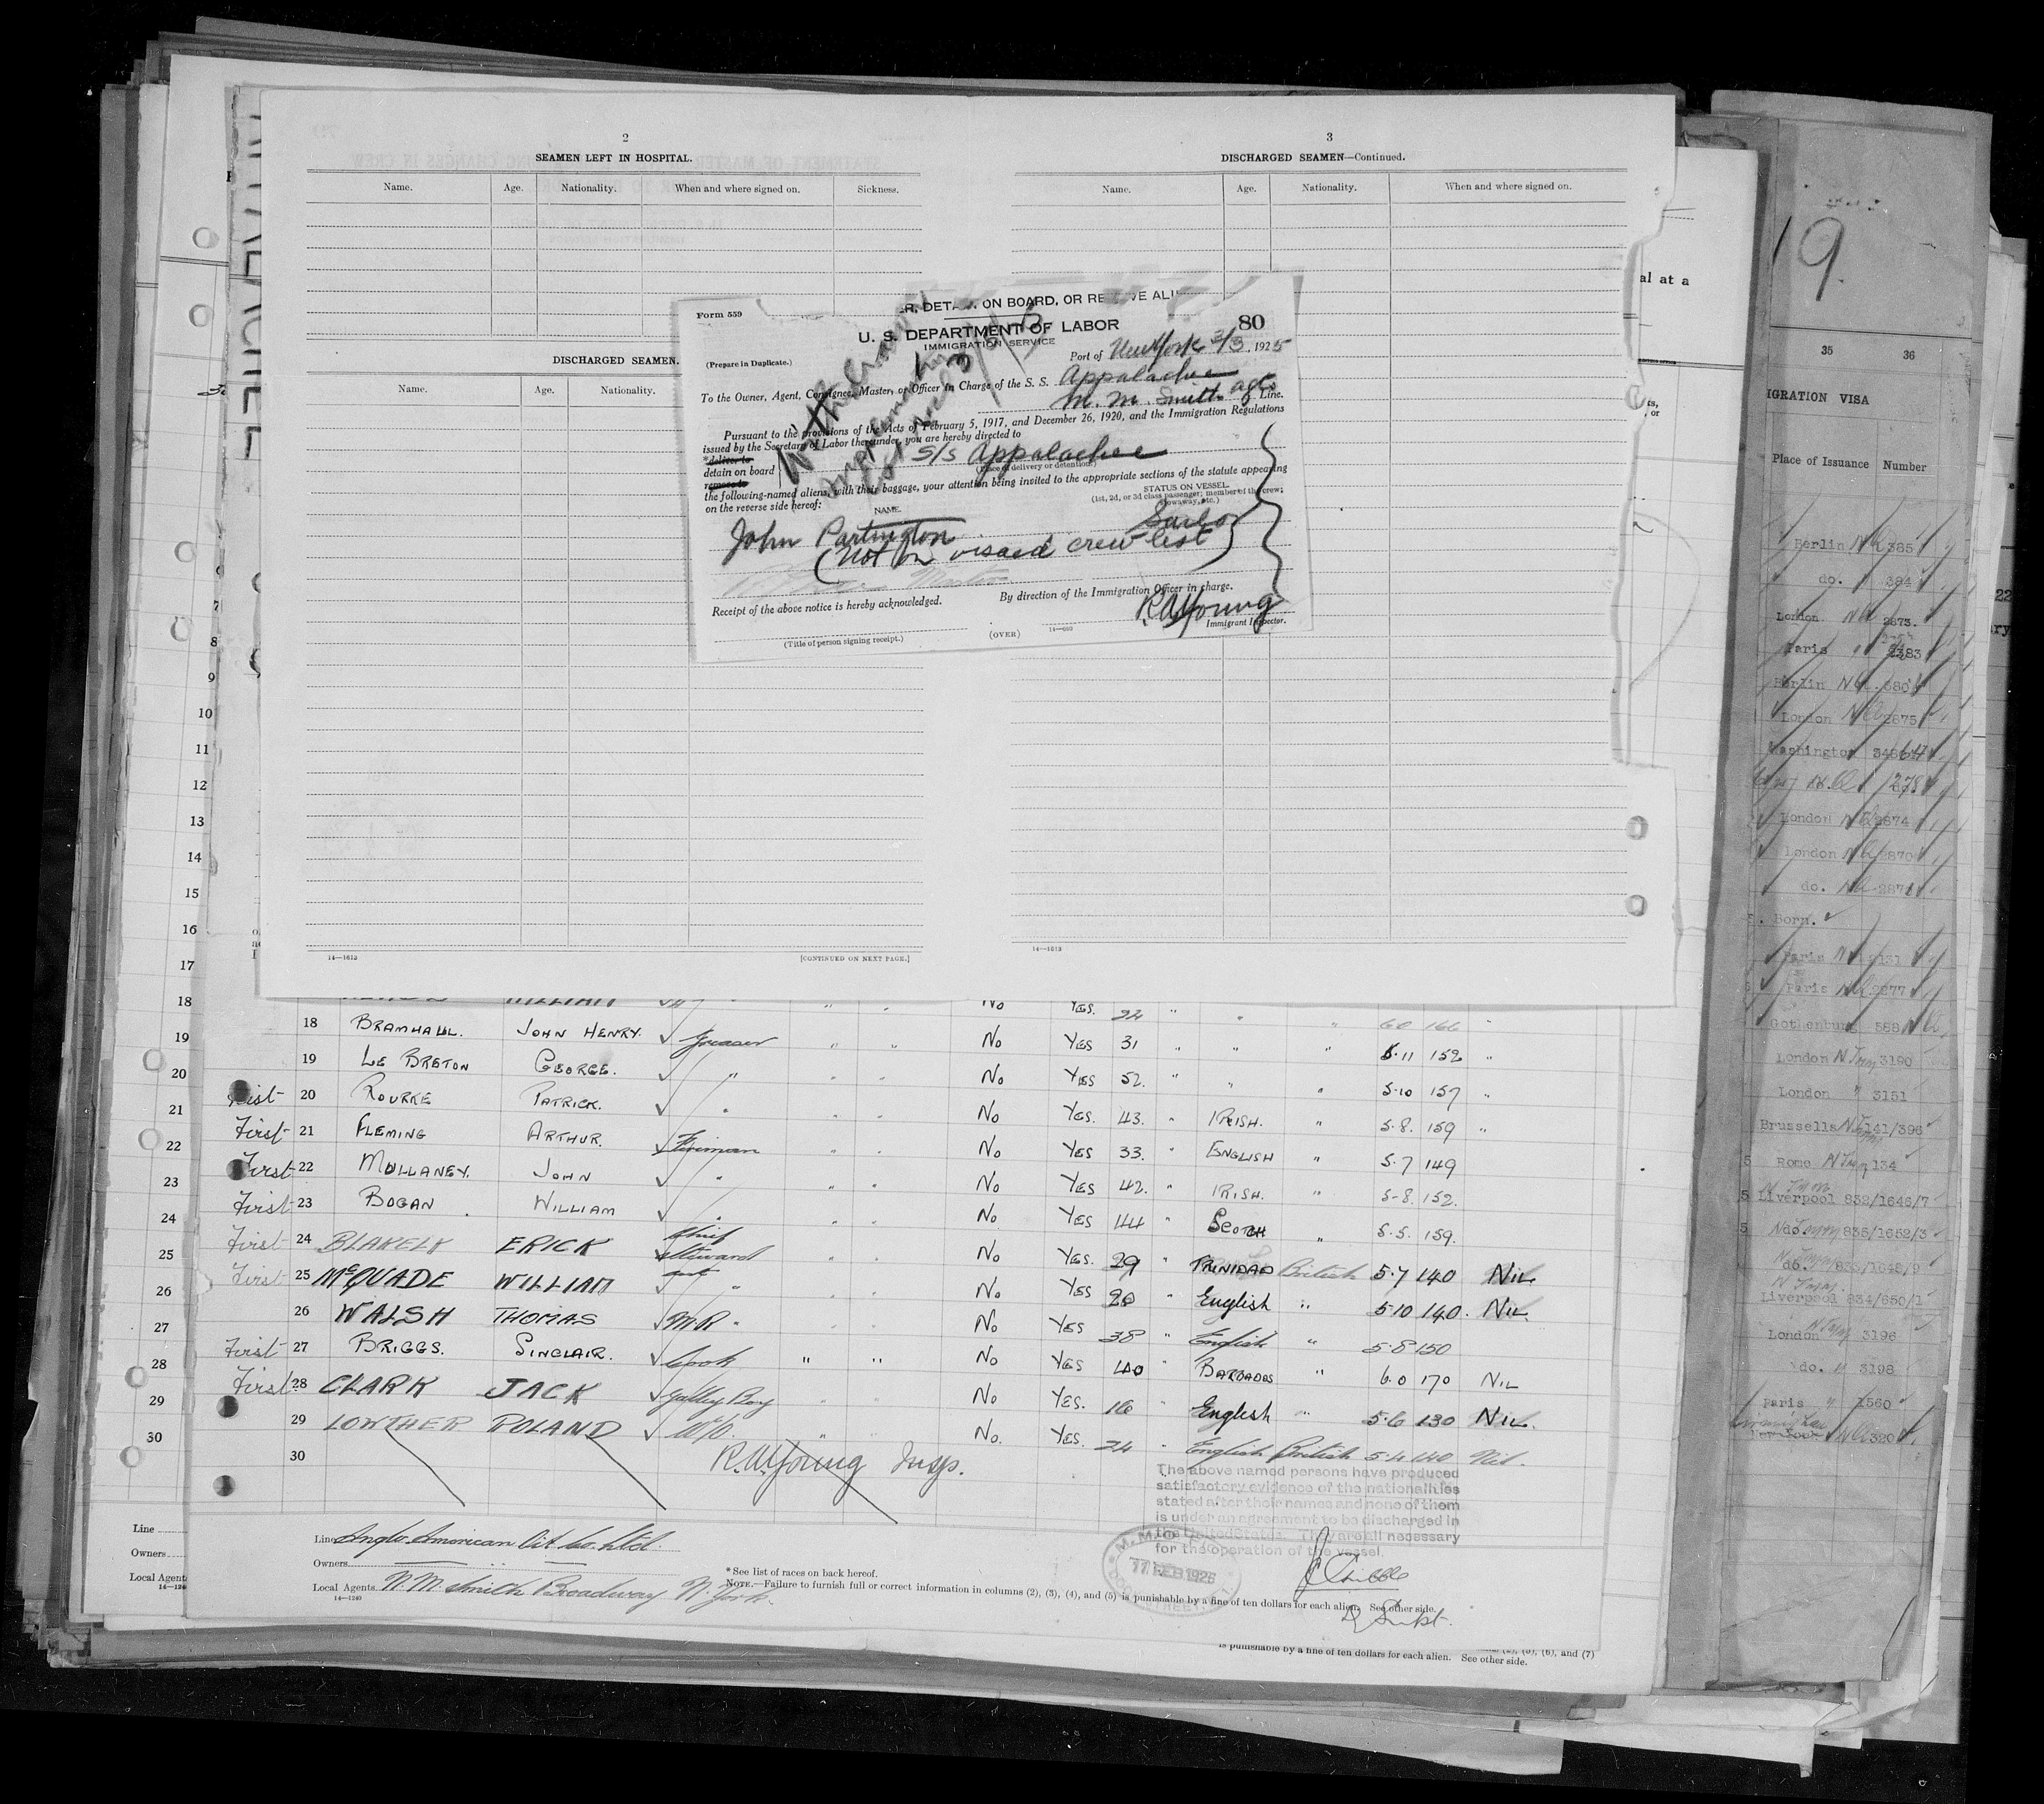 2
SEAMEN LEFT IN HOSPITAL.
Name. Age. Nationality. When and where signed on. Sickness.
DISCHARGED SEAMEN.
Name. Age. Nationality.
14—1613 [CONTINUED ON NEXT PAGE.]
3
DISCHARGED SEAMEN—Continued.
Name. Age. Nationality. When and where signed on.
14—1613
ON BOARD, OR
Form 559
U. S. DEPARTMENT OF LABOR 80
IMMIGRATION SERVICE
(Prepare in Duplicate.)
Port of New York 3/3, 1925
To the Owner, Agent, Consignee, Master, or Officer in Charge of the S. S. Appalachee
M. M. Smith agts Line.
Pursuant to the provisions of the Acts of February 5, 1917, and December 26, 1920, and the Immigration Regulations
issued by the Secretary of Labor thereunder, you are hereby directed to
*deliver to
detain on board s/s Appalachee
remove to (Place of delivery or detention.)
the following-named aliens, with their baggage, your attention being invited to the appropriate sections of the statute appearing
on the reverse side hereof:
STATUS ON VESSEL
(1st, 2d, or 3d class passenger; member of the crew;
stowaway, etc.)
NAME
John Partington Sailor
(Not on visaed crew list)
Receipt of the above notice is hereby acknowledged. By direction of the Immigration Officer in charge.
R.A. Young
Immigrant Inspector.
(Title of person signing receipt.) (OVER) 14—693
18 BRAMHALL. JOHN HENRY. Greaser " " No YES 31 " " " 5.11 152 "
19 LE BRETON GEORGE. " " " No YES 52. " " " 5.10 157 "
20 ROURKE PATRICK. " " " No YES. 43. " IRISH. " 5.8. 159 "
First 21 FLEMING ARTHUR. Fireman " " No YES 33. " ENGLISH " 5.7 149
First 22 MULLANEY. JOHN " " " No YES 42. " IRISH. " 5-8. 152.
First 23 BOGAN WILLIAM " " " No YES 44 " SCOTCH " 5.5. 159.
First 24 BLAKELY ERICK Chief Steward " " No YES. 29 " TRINIDAD British 5.7 140 NIL
First 25 McQUADE WILLIAM " " " No YES 20 " English " 5.10 140. NIL.
26 WALSH THOMAS M.R " " " No YES 38 " English " 5.8 150
First 27 BRIGGS. SINCLAIR. Cook " " No YES 40 " BARBADOS " 6.0 170 NIL
First 28 CLARK JACK Galley Boy " " No YES. 16 " English " 5.6 130 NIL.
29 LOWTHER ROLAND W/O. " " No. YES. 24 " English British 5.4 140 Nil.
30 R.A. Young Insp.
The above named persons have produced
satisfactory evidence of the nationalities
stated after their names and none of them
is under an agreement to be discharged in
the United States. They are all necessary
for the operation of the vessel.
Line Anglo American Oil Co. Ltd.
Owners
Local Agents M. M. Smith Broadway N. York.
14—1240
* See list of races on back hereof.
NOTE.—Failure to furnish full or correct information in columns (2), (3), (4), and (5) is punishable by a fine of ten dollars for each alien. See other side.
is punishable by a fine of ten dollars for each alien. See other side.
Line
Owners
Local Agent
7
8
9
10
11
12
13
14
15
16
17
18
19
20
21
22
23
24
25
26
27
28
29
30
al at a
19
35 36
IGRATION VISA
Place of Issuance Number
Berlin 385
do. 384
London 2873.
Paris 2383
Berlin
London 2875
Washington
London 2874
London 2870
do.
Born.
Paris
Paris 2277
Gothenburg 588
London 3190
London " 3151
Brussels 141/396
Rome 134
Liverpool 832/1646/7
do. 835/1652/3
do.
Liverpool 834/650/1
London 3196
do. 3198
Paris 1560